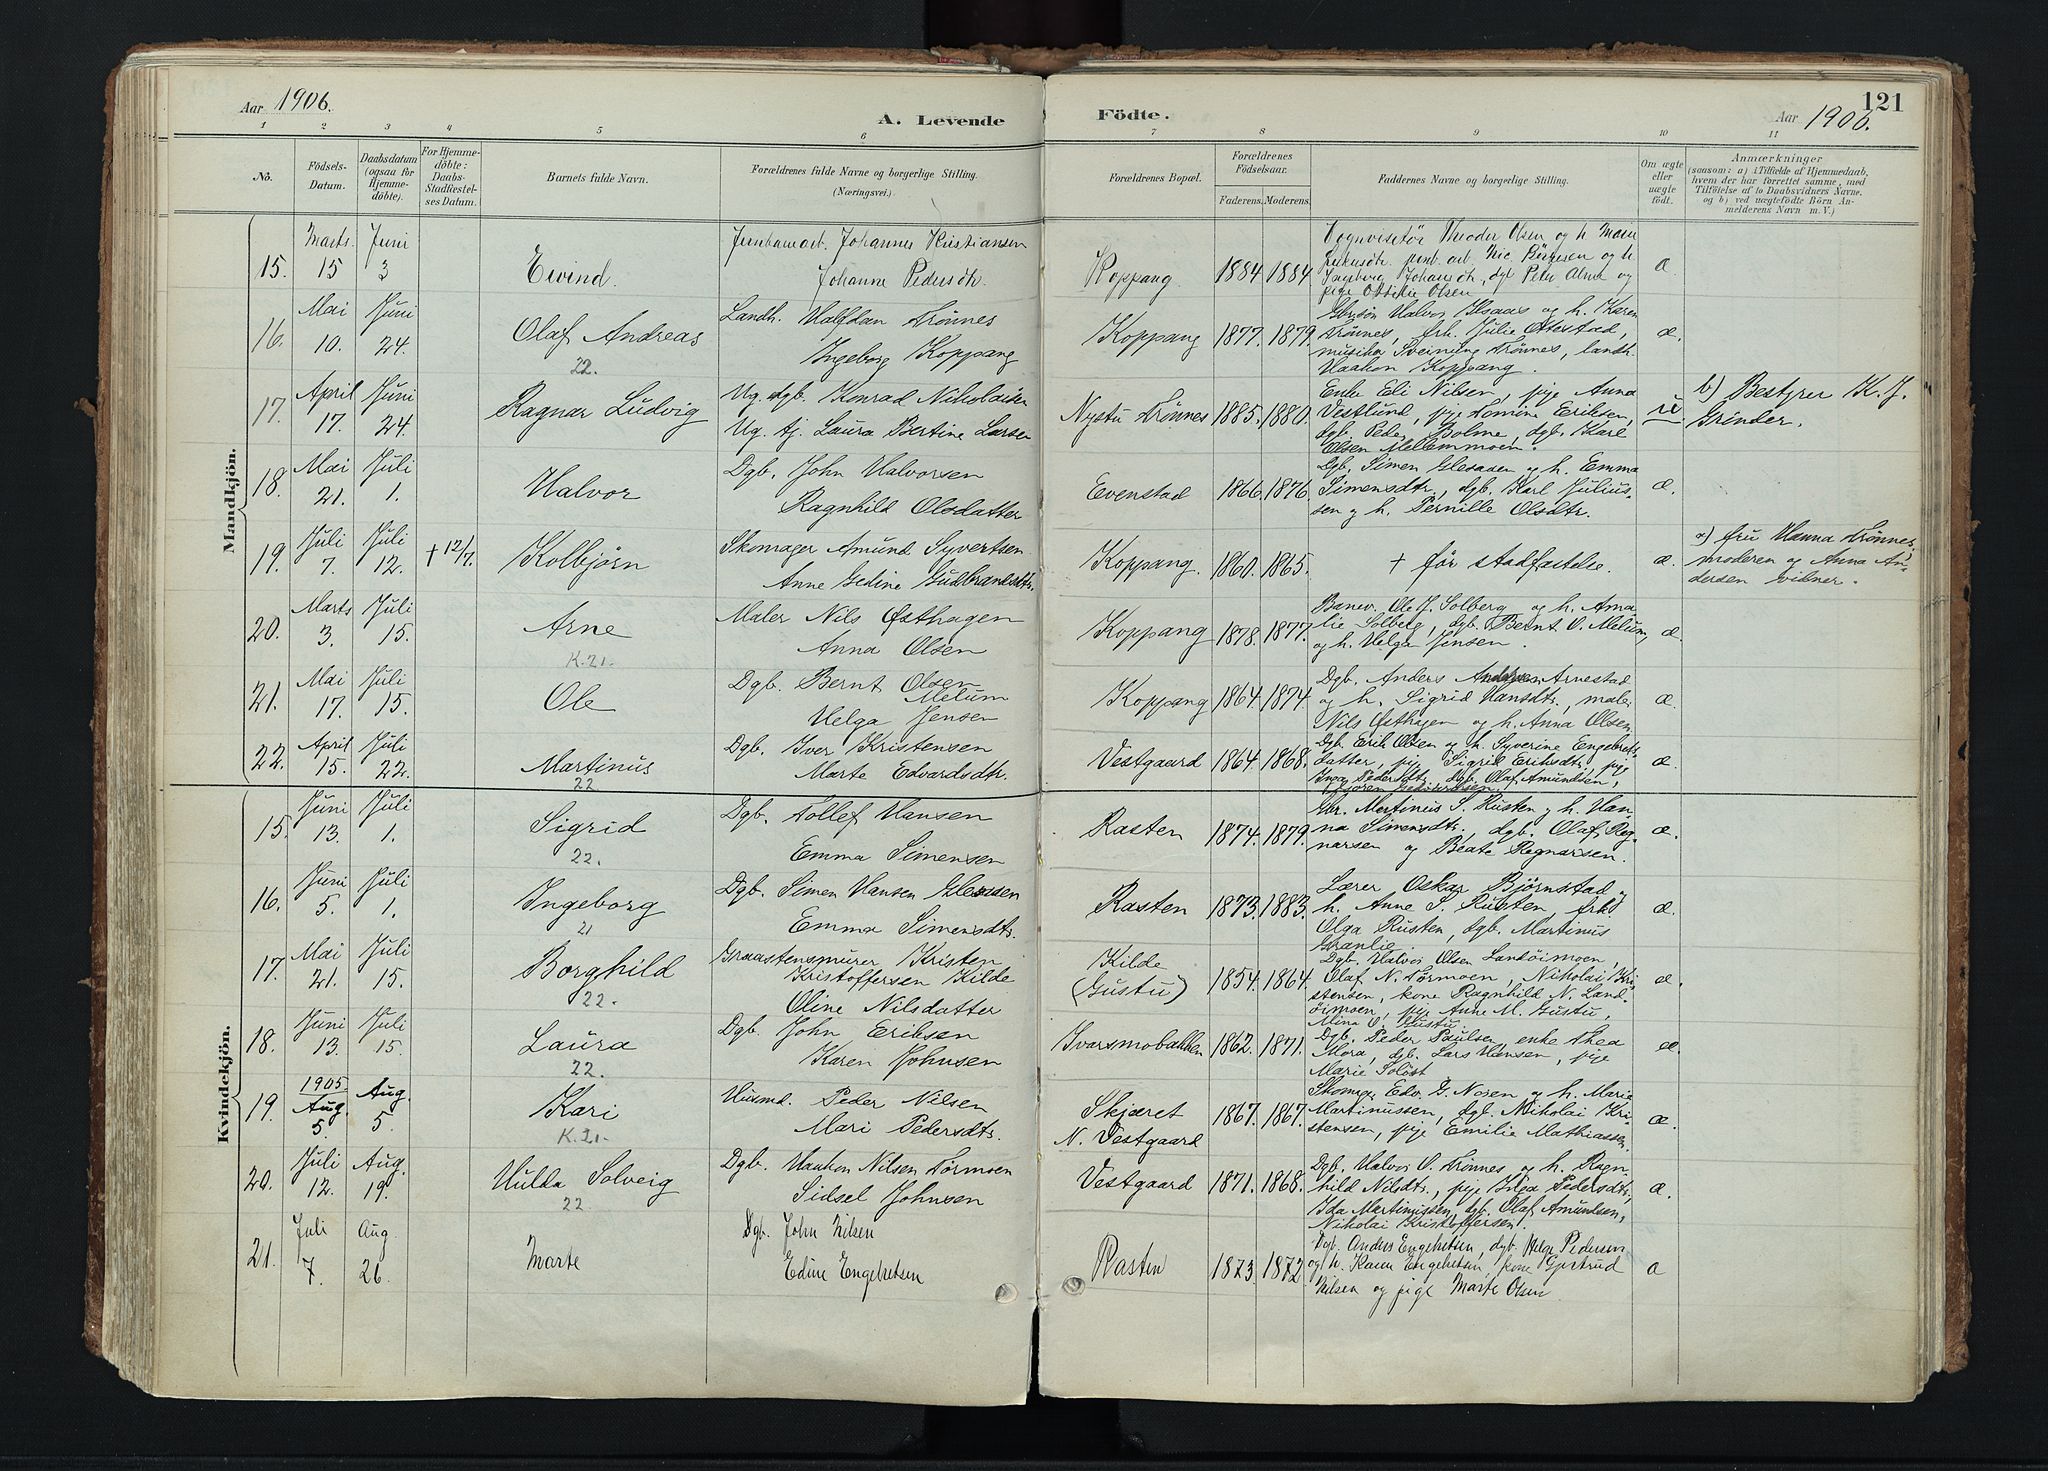 Aar 1906.
A. Levende Födte.
121
Aar 1906.
1 2 3 4 5 6 7 8 9 10 11
No.
Födsels-
Datum.
Daabsdatum
(ogsaa for
Hjemme-
döbte).
For Hjemme-
döbte:
Daabs-
Stadfæstel-
ses Datum.
Barnets fulde Navn.
Forældrenes fulde Navne og borgerlige Stilling.
(Næringsvei).
Forældrenes Bopæl.
Forældrenes
Födselsaar.
Faderens. Moderens.
Faddernes Navne og borgerlige Stilling.
Om ægte
eller
uægte
födt.
Anmærkninger
(saasom: a) i Tilfælde af Hjemmedaab,
hvem der har forrettet samme, med
Tilföielse af to Daabsvidners Navne,
og b) ved uægtefödte Börn An-
melderens Navn m. V.)
Mandkjön.
15. Marts 15 Juni 3 Eivind.
Johannes Kristiansen
Johanne Pedersdtr.
Koppang 1884 1884
Theodor Olsen og h.
Ingeborg
pige Olsen
16. Mai 10. Juni 24. Olaf Andreas
22.
Landh. Halfdan Trönnes
Ingeborg Koppang
Koppang 1877. 1879.
Halvor og h. Karen
Trönnes, frk. Julie
musiker Sveinung Trönnes, landh.
Haakon Koppang.
æ.
17. April 17. Juni 24. Ragnar Ludvig
Ug. dgb. Konrad Nikolaisen
Ug. tj. Laura Bertine Larsen
Nystu Trönnes 1885. 1880.
Enke Eli Nilsen, pige Anna
Vestlund, pige Tomine Eriksen,
dgb. Peder Bolme, dgb. Karl
Olsen Mellemmoen.
u
b) Bestyrer K. J.
Grinder.
18. Mai 21. Juli 1. Halvor
Dgb. John Halvorsen
Ragnhild Olsdatter
Evenstad 1866. 1876.
Dgb. Simen Glesaaen og h. Emma
Simensdtr, dgb. Karl Julius-
sen og h. Pernille Olsdtr.
æ.
19. Juli 7. Juli 12. + 12/7. Kolbjörn
Skomager Amund Syvertsen
Anne Gedine Gudbrandsdtr.
Koppang. 1860. 1865.
+ för stadfæstelse.
æ.
a) fru Hanna Trönnes,
moderen og Anna An-
dersen vidner.
20. Marts 3. Juli 15. Arne
K. 21.
Maler Nils Østhagen
Anna Olsen
Koppang 1878. 1877.
Banev. Ole J. Solberg og h. Ama-
lie Solberg, dgb. Bernt O. Melum,
og h. Helga Jensen.
æ.
21. Mai 17. Juli 15. Ole
Dgb. Bernt Olsen
Melum
Helga Jensen
Koppang 1864. 1874.
Dgb. Anders Andersen Arnestad
og h. Sigrid Hansdtr., maler
Nils Østhagen og h. Anna Olsen
æ.
22. April 15. Juli 22. Martinus
22
Dgb. Iver Kristensen
Marte Edvardsdtr.
Vestgaard 1864. 1868.
Dgb. Erik Olsen og h. Syverine Engebrets-
datter, pige Sigrid Eriksdtr., pige
Inga Pedersdtr. dgb. Olaf Amundsen,
æ.
Kvindekjön.
15. Juni 13. Juli 1. Sigrid
22.
Dgb. Tollef Hansen
Emma Simensen
Rasten 1874. 1879.
Gbr. Martinus S. Rusten og h. Han-
na Simensdtr., dgb. Olaf Rag-
narsen og Beate Ragnarsen.
æ.
16. Juni 5. Juli 1. Ingeborg
21
Dgb. Simen Hansen Glesaaen
Emma Simensdtr.
Rasten 1873. 1883.
Lærer Oskar Bjørnstad og
h. Anne S. Rusten, frk.
Olga Rusten, dgb. Martinus
Granlie.
æ.
17. Mai 21. Juli 15. Borghild
22.
Graastensmurer Kristen
Kristoffersen Kilde
Oline Nilsdatter
Kilde
(Gustu) 1854. 1864.
Dgb. Halvor Olsen Landöimoen,
Olaf N. Tørmoen, Nikolai Kri-
stensen, kone Ragnhild N. Land-
öimoen, pige Anne M. Gustu,
Mina O. Gustu
æ.
18. Juni 13. Juli 15. Laura
22.
Dgb. John Eriksen
Karen Johnsen
Ivarsmobakken 1862. 1871.
Dgb. Peder Paulsen, enke Thea
Mora, dgb. Lars Hansen, pige
Marie Soløst
æ.
19. 1905 Aug. 5. Aug. 5. Kari
K. 21.
Husmd. Peder Nilsen
Mari Pedersdtr.
Skjæret
N. Vestgaard 1867. 1867.
Skomag. Edv. G. Nosen og h. Marie
Martinussen, dgb. Nikolai Kri-
stensen, pige Emilie Mathiassen
æ.
20. Juli 12. Aug. 19. Hulda Solveig
22.
Dgb. Haakon Nilsen Tørmoen
Sidsel Johnsen
Vestgaard 1871. 1868.
Dgb. Halvor O. Trönnes og h. Ragn-
hild Nilsdtr., pige Inga Pedersdtr.
Ida Martinussen, dgb. Olaf Amundsen,
Nikolai Kristoffersen.
æ.
21. Juli 7. Aug. 26. Marte
Dgb. John Nilsen
Edine Engebretsen
Rasten 1873 1872
Dgb. Anders Engebretsen, dgb. Helge Pedersen
og h. Karen Engebretsen, kone Gjertrud
Nilsen og pige Marte Olsen